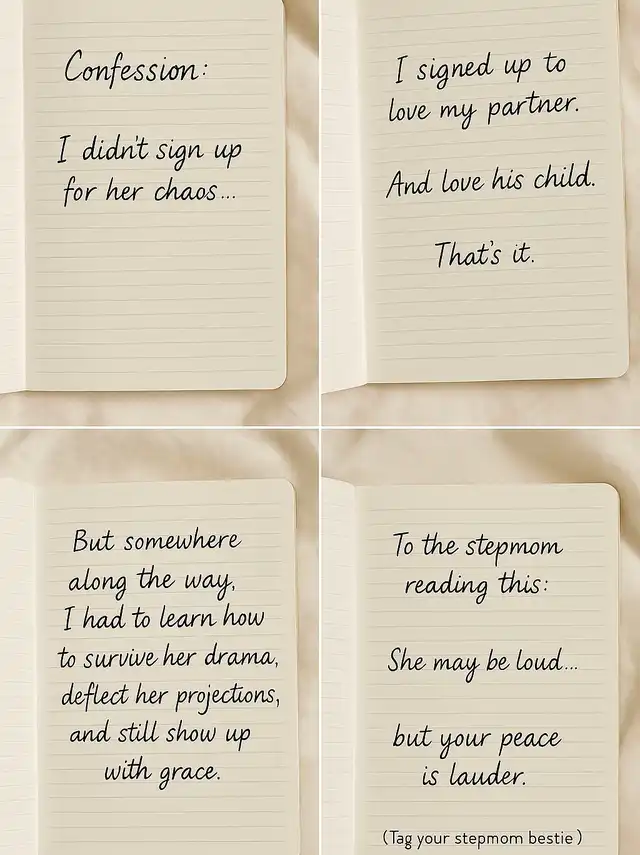 Confession:
I didn't sign up
for her chaos...
I signed up to
love my partner.
And love his child.
That's it.
But somewhere
along the way,
I had to learn how
to survive her drama,
deflect her projections,
and still show up
with grace.
To the stepmom
reading this:
She may be loud...
but your peace
is lauder.
(Tag your stepmom bestie)